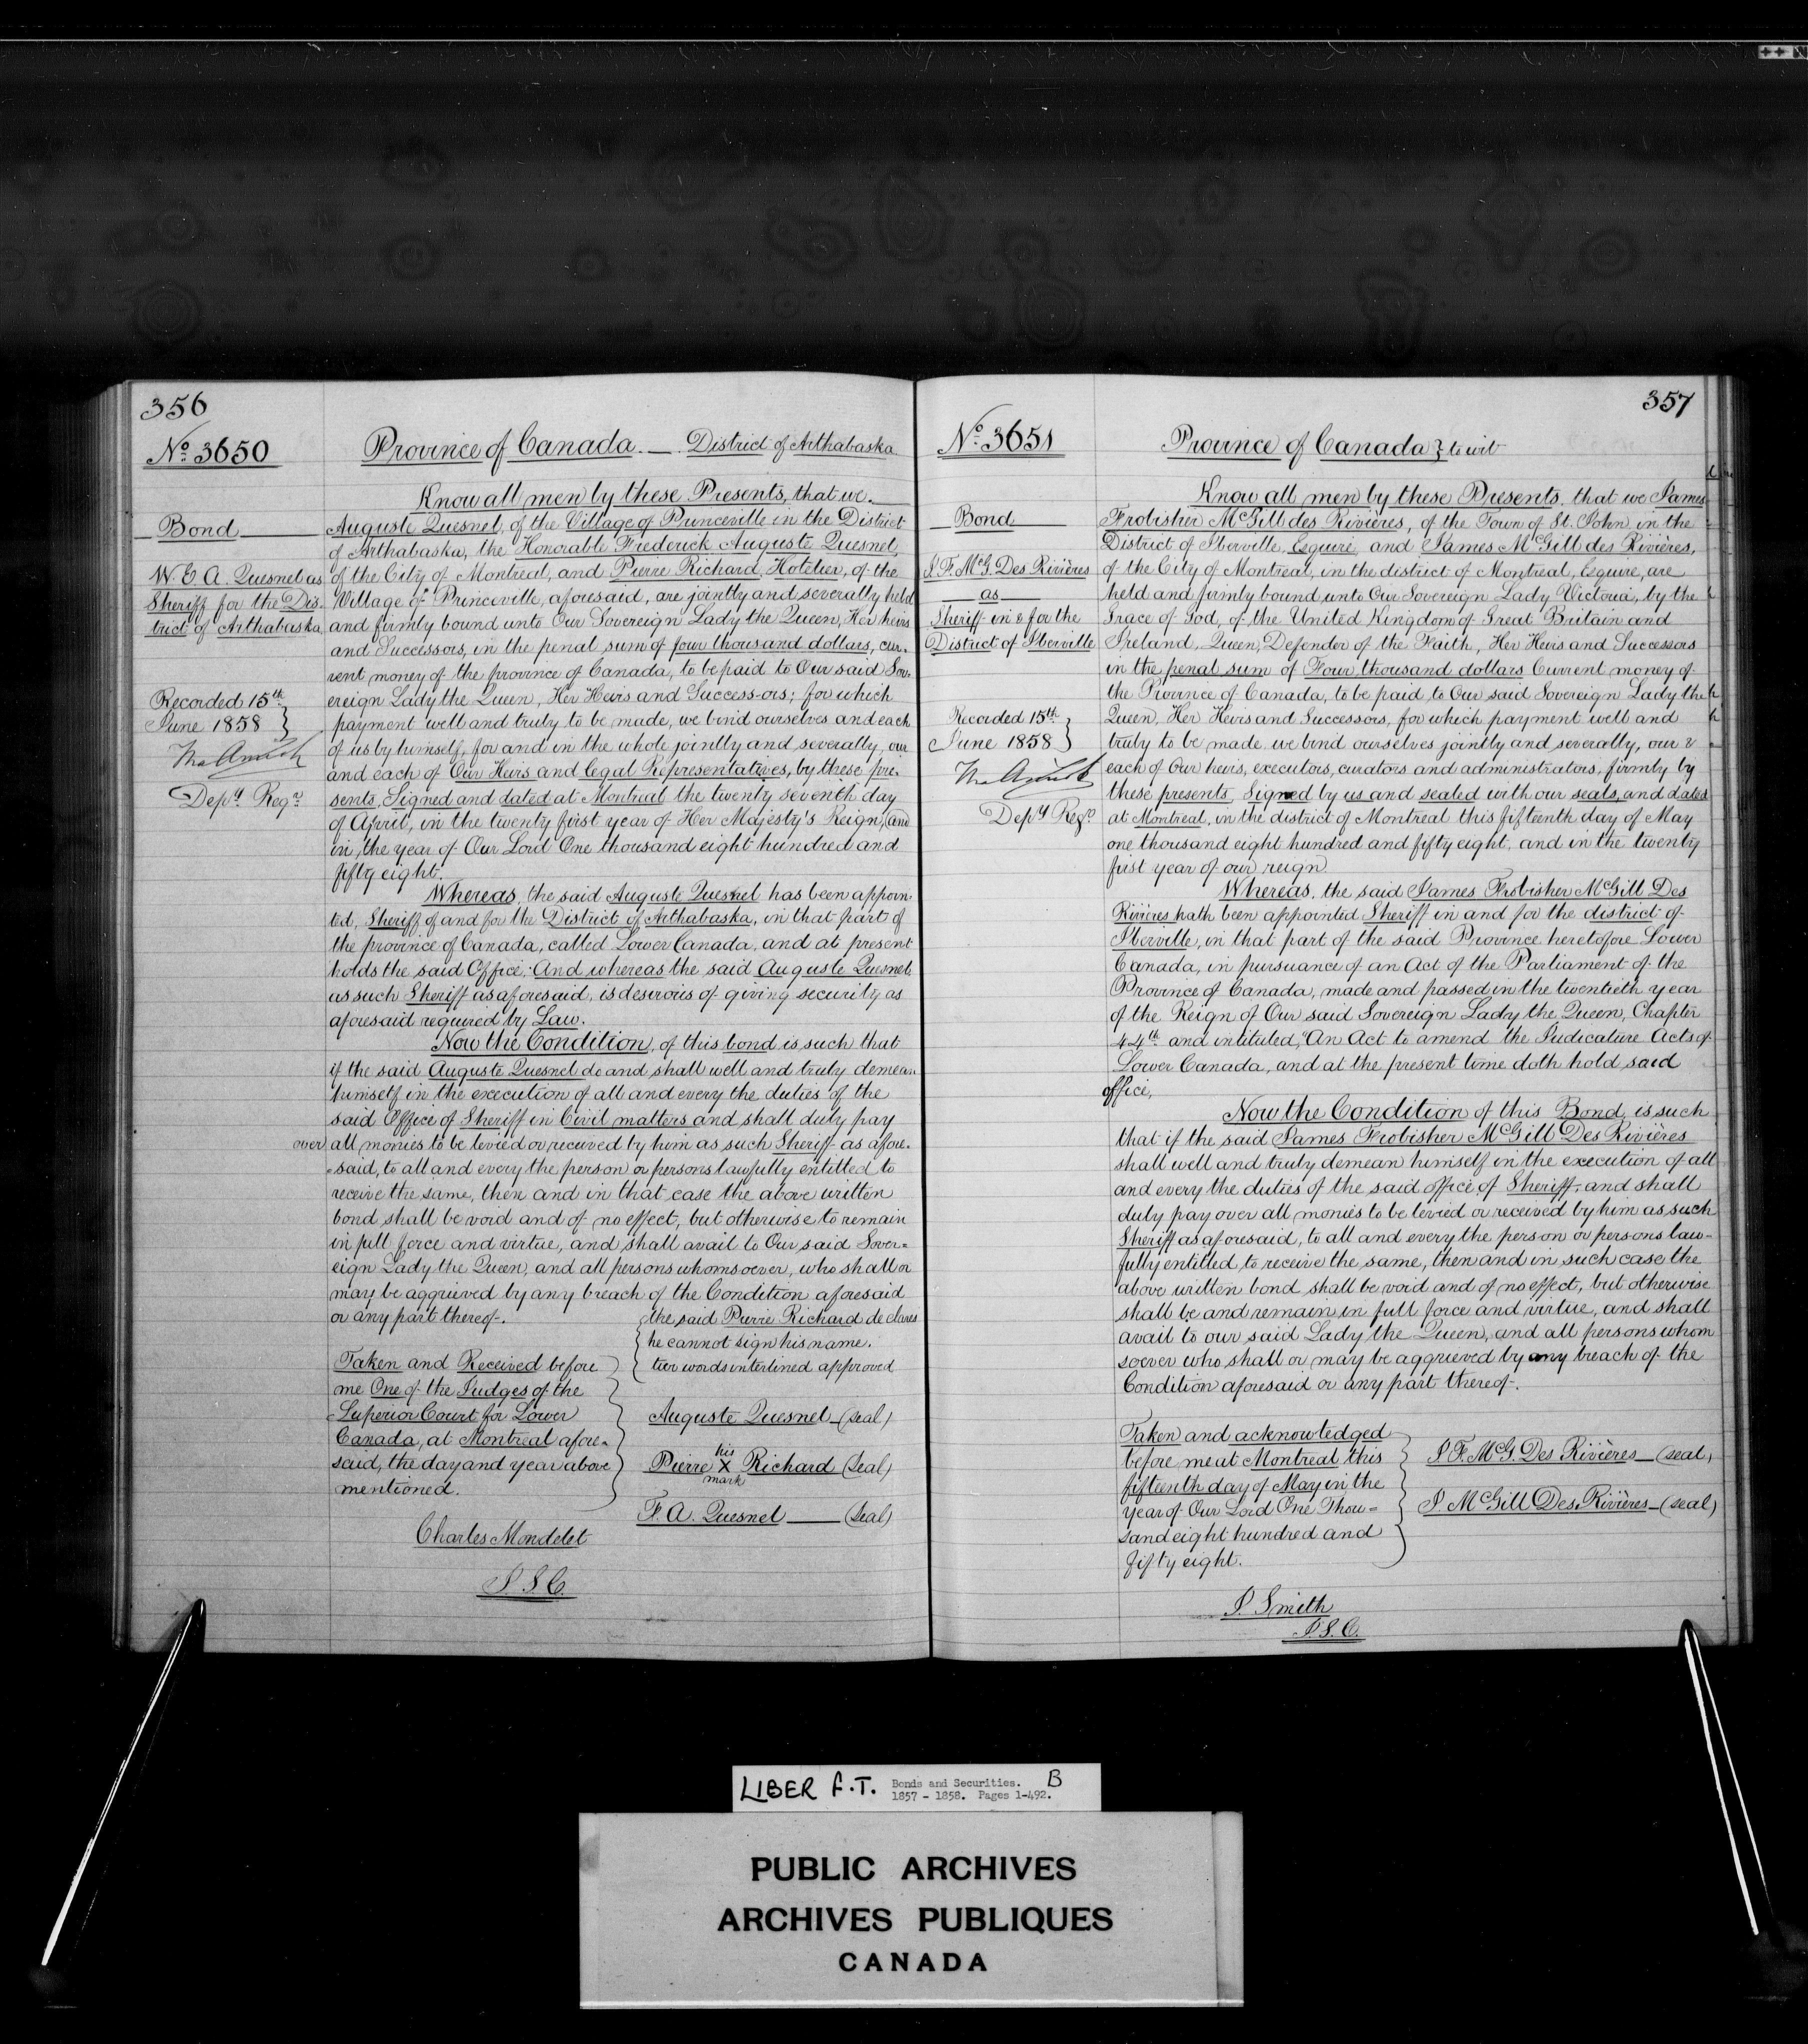 356
No. 3650
Province of Canada. — District of Arthabaska.
Know all men by these Presents, that we
Bond
Auguste Quesnel, of the Village of Princeville in the District
of Arthabaska, the Honorable Frederick Auguste Quesnel,
W. E. A. Quesnel as
Sheriff for the Dis-
trict of Arthabaska
of the City of Montreal, and Pierre Richard, Hotelier, of the
Village of Princeville, aforesaid, are jointly and severally held
and firmly bound unto Our Sovereign Lady the Queen, Her heirs
and Successors, in the penal sum of four thousand dollars, cur-
rent money of the province of Canada, to be paid to Our said Sov-
ereign Lady the Queen, Her Heirs and Success-ors; for which
Recorded 15th
June 1858
Depy Regr
payment well and truly to be made, we bind ourselves and each
of us by himself, for and in the whole jointly and severally, our
and each of Our Heirs and legal Representatives, by these pre-
sents, Signed and dated at Montreal the twenty seventh day
of April, in the twenty first year of Her Majesty's Reign, and
in the year of Our Lord One thousand eight hundred and
fifty eight.
Whereas, the said Auguste Quesnel has been appoin-
ted, Sheriff of and for the District of Arthabaska, in that part of
the province of Canada, called Lower Canada, and at present
holds the said Office; And whereas the said Auguste Quesnel
as such Sheriff as aforesaid, is desirous of giving security as
aforesaid required by Law.
Now the Condition, of this bond is such that
if the said Auguste Quesnel do and shall well and truly demean
himself in the execution of all and every the duties of the
said Office of Sheriff in Civil matters and shall duly pay
over all monies to be levied or received by him as such Sheriff as afore-
said, to all and every the person or persons lawfully entitled to
receive the same, then and in that case the above written
bond shall be void and of no effect, but otherwise to remain
in full force and virtue, and shall avail to Our said Sover=
eign Lady the Queen, and all persons whomsoever, who shall or
may be aggrieved by any breach of the Condition aforesaid
or any part thereof.
the said Pierre Richard declares
he cannot sign his name.
words interlined approved
Taken and Received before
me One of the Judges of the
Superior Court for Lower
Canada, at Montreal afore-
said, the day and year above
mentioned.
Auguste Quesnel (seal)
Pierre his X mark Richard (seal)
F. A. Quesnel (seal)
Charles Mondelet
J. S. C.
357
No. 3651
Province of Canada } to wit
Know all men by these Presents, that we James
Bond
J. F. McG. Des Rivières
as
Sheriff in & for the
District of Iberville
Frobisher McGill des Rivières, of the Town of St. John in the
District of Iberville, Esquire and James McGill des Rivières,
of the City of Montreal, in the district of Montreal, Esquire, are
held and firmly bound unto Our Sovereign Lady Victoria, by the
Grace of God, of the United Kingdom of Great Britain and
Ireland, Queen, Defender of the Faith, Her Heirs and Successors
in the penal sum of Four thousand dollars Current money of
the Province of Canada, to be paid to Our said Sovereign Lady the
Recorded 15th
June 1858
Depy Regr
Queen, Her Heirs and Successors, for which payment well and
truly to be made we bind ourselves jointly and severally, our &
each of Our heirs, executors, curators and administrators, firmly by
these presents, Signed by us and sealed with our seals, and dated
at Montreal, in the district of Montreal this fifteenth day of May
one thousand eight hundred and fifty eight, and in the twenty
first year of our reign
Whereas, the said James Frobisher McGill Des
Rivières hath been appointed Sheriff in and for the district of
Iberville, in that part of the said Province heretofore Lower
Canada, in pursuance of an Act of the Parliament of the
Province of Canada, made and passed in the twentieth year
of the Reign of Our said Sovereign Lady the Queen, Chapter
44th and intituled, "An Act to amend the Judicature Acts of
Lower Canada, and at the present time doth hold said
office,
Now the Condition of this Bond is such
that if the said James Frobisher McGill Des Rivières
shall well and truly demean himself in the execution of all
and every the duties of the said office of Sheriff, and shall
duly pay over all monies to be levied or received by him as such
Sheriff as aforesaid, to all and every the person or persons law-
fully entitled to receive the same, then and in such case the
above written bond shall be void and of no effect, but otherwise
shall be and remain in full force and virtue, and shall
avail to our said Lady the Queen, and all persons whom
soever who shall or may be aggrieved by any breach of the
Condition aforesaid or any part thereof.
Taken and acknowledged
before me at Montreal this
fifteenth day of May in the
year of Our Lord One Thou=
sand eight hundred and
fifty eight.
J. F. McG. Des Rivières (seal)
J. McGill Des Rivières (seal)
J. Smith
J. S. C.
LIBER F.T. Bonds and Securities. B
1857 - 1858. Pages 1-492.
PUBLIC ARCHIVES
ARCHIVES PUBLIQUES
CANADA